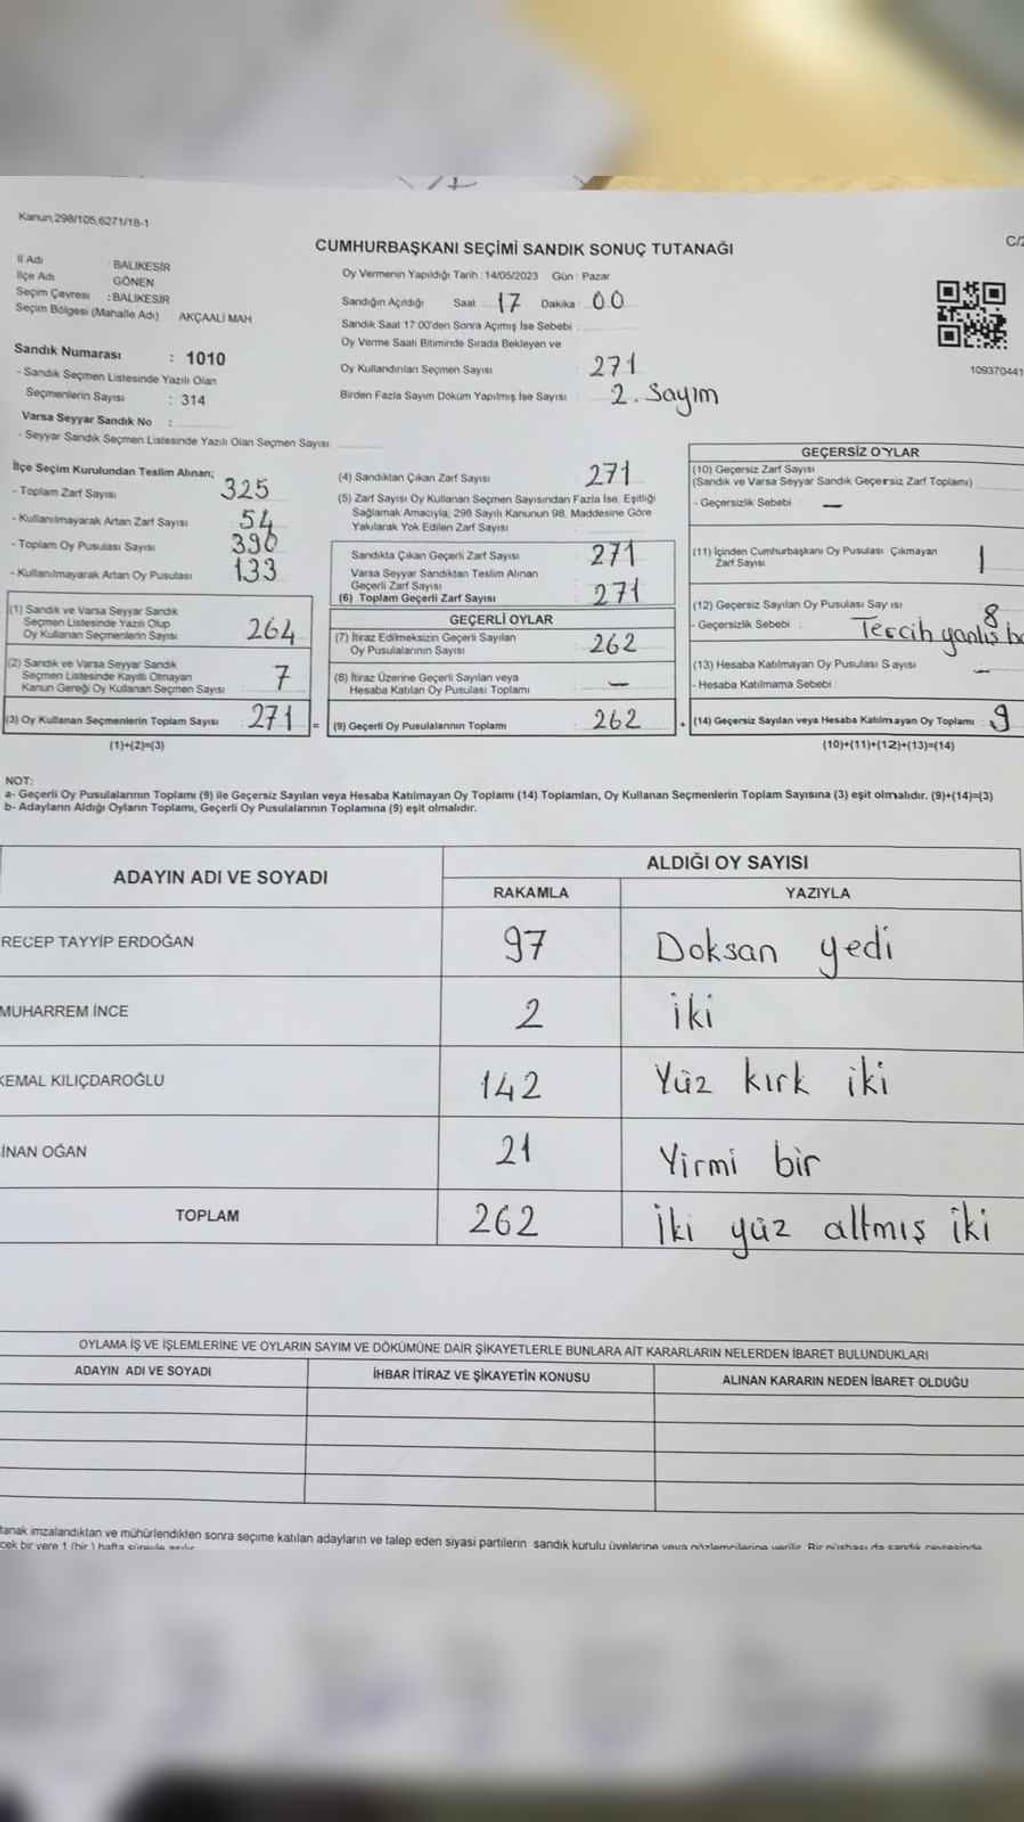 Kanun,298/105,6271/18-1
C/2
CUMHURBAŞKANI SEÇİMİ SANDIK SONUÇ TUTANAĞI
İl Adı : BALIKESİR
İlçe Adı GÖNEN
Seçim Çevresi : BALIKESİR
Seçim Bölgesi (Mahalle Adı) AKÇAALİ MAH
Sandık Numarası : 1010
- Sandık Seçmen Listesinde Yazılı Olan
Seçmenlerin Sayısı : 314
Varsa Seyyar Sandık No :
- Seyyar Sandık Seçmen Listesinde Yazılı Olan Seçmen Sayısı
Oy Vermenin Yapıldığı Tarih : 14/05/2023 Gün : Pazar
Sandığın Açıldığı Saat 17 Dakika 00
Sandık Saat 17:00'den Sonra Açmış İse Sebebi
Oy Verme Saati Bitiminde Sırada Bekleyen ve
Oy Kullandırılan Seçmen Sayısı 271
Birden Fazla Sayım Döküm Yapılmış İse Sayısı 2. Sayım
109370441
İlçe Seçim Kurulundan Teslim Alınan;
- Toplam Zarf Sayısı 325
- Kullanılmayarak Artan Zarf Sayısı 54
- Toplam Oy Pusulası Sayısı
- Kullanılmayarak Artan Oy Pusulası 133
(1) Sandık ve Varsa Seyyar Sandık
Seçmen Listesinde Yazılı Olup
Oy Kullanan Seçmenlerin Sayısı 264
(2) Sandık ve Varsa Seyyar Sandık
Seçmen Listesinde Kayıtlı Olmayan
Kanun Gereği Oy Kullanan Seçmen Sayısı 7
(3) Oy Kullanan Seçmenlerin Toplam Sayısı 271 =
(1)+(2)=(3)
(4) Sandıktan Çıkan Zarf Sayısı 271
(5) Zarf Sayısı Oy Kullanan Seçmen Sayısından Fazla İse, Eşitliği
Sağlamak Amacıyla, 298 Sayılı Kanunun 98. Maddesine Göre
Yakılarak Yok Edilen Zarf Sayısı
Sandıkta Çıkan Geçerli Zarf Sayısı 271
Varsa Seyyar Sandıktan Teslim Alınan
Geçerli Zarf Sayısı
(6) Toplam Geçerli Zarf Sayısı 271
GEÇERLİ OYLAR
(7) İtiraz Edilmeksizin Geçerli Sayılan
Oy Pusulalarının Sayısı 262
(8) İtiraz Üzerine Geçerli Sayılan veya
Hesaba Katılan Oy Pusulası Toplamı —
(9) Geçerli Oy Pusulalarının Toplamı 262
GEÇERSİZ OYLAR
(10) Geçersiz Zarf Sayısı
(Sandık ve Varsa Seyyar Sandık Geçersiz Zarf Toplamı)
- Geçersizlik Sebebi —
(11) İçinden Cumhurbaşkanı Oy Pusulası Çıkmayan
Zarf Sayısı 1
(12) Geçersiz Sayılan Oy Pusulası Sayısı 8
- Geçersizlik Sebebi : Tercih yanlış
(13) Hesaba Katılmayan Oy Pusulası Sayısı —
- Hesaba Katılmama Sebebi :
(14) Geçersiz Sayılan veya Hesaba Katılmayan Oy Toplamı 9
(10)+(11)+(12)+(13)=(14)
NOT:
a- Geçerli Oy Pusulalarının Toplamı (9) ile Geçersiz Sayılan veya Hesaba Katılmayan Oy Toplamı (14) Toplamları, Oy Kullanan Seçmenlerin Toplam Sayısına (3) eşit olmalıdır. (9)+(14)=(3)
b- Adayların Aldığı Oyların Toplamı, Geçerli Oy Pusulalarının Toplamına (9) eşit olmalıdır.
ADAYIN ADI VE SOYADI ALDIĞI OY SAYISI
RAKAMLA YAZIYLA
RECEP TAYYİP ERDOĞAN 97 Doksan yedi
MUHARREM İNCE 2 iki
KEMAL KILIÇDAROĞLU 142 Yüz kırk iki
İNAN OĞAN 21 Yirmi bir
TOPLAM 262 İki yüz altmış iki
OYLAMA İŞ VE İŞLEMLERİNE VE OYLARIN SAYIM VE DÖKÜMÜNE DAİR ŞİKAYETLERLE BUNLARA AİT KARARLARIN NELERDEN İBARET BULUNDUKLARI
ADAYIN ADI VE SOYADI İHBAR İTİRAZ VE ŞİKAYETİN KONUSU ALINAN KARARIN NEDEN İBARET OLDUĞU
tanak imzalandıktan ve mühürlendikten sonra seçime katılan adayların ve talep eden siyasi partilerin sandık kurulu üyelerine veya gözlemcilerine verilir. Bir nüshası da sandık çevresinde
cek bir yere 1 (bir) hafta süreyle asılır.